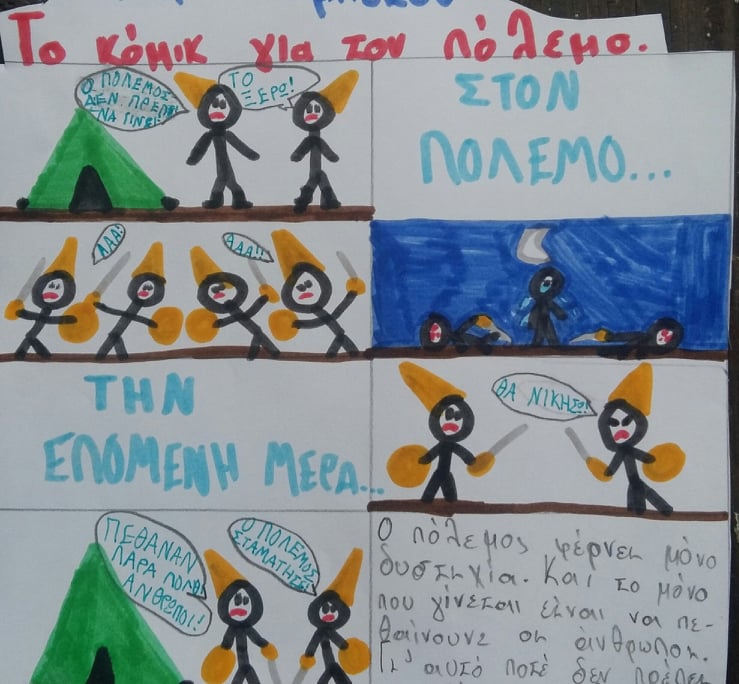 Το κόμικ για τον πόλεμο.
Ο ΠΟΛΕΜΟΣ
ΔΕΝ ΠΡΕΠΕΙ
ΝΑ ΓΙΝΕΙ!
ΤΟ
ΞΕΡΩ!
ΣΤΟΝ
ΠΟΛΕΜΟ...
ΑΑΑ!
ΑΑΑ!!
ΤΗΝ
ΕΠΟΜΕΝΗ ΜΕΡΑ...
ΘΑ ΝΙΚΗΣΩ!
ΠΕΘΑΝΑΝ
ΠΑΡΑ ΠΟΛΛΟΙ
ΑΝΘΡΩΠΟΙ!
Ο ΠΟΛΕΜΟΣ
ΣΤΑΜΑΤΗΣΕ!
Ο πόλεμος φέρνει μόνο
δυστιχία. Και το μόνο
που γίνεται είναι να πε-
θαίνουνε οι άνθρωποι.
Γι' αυτό ποτέ δεν πρέπει